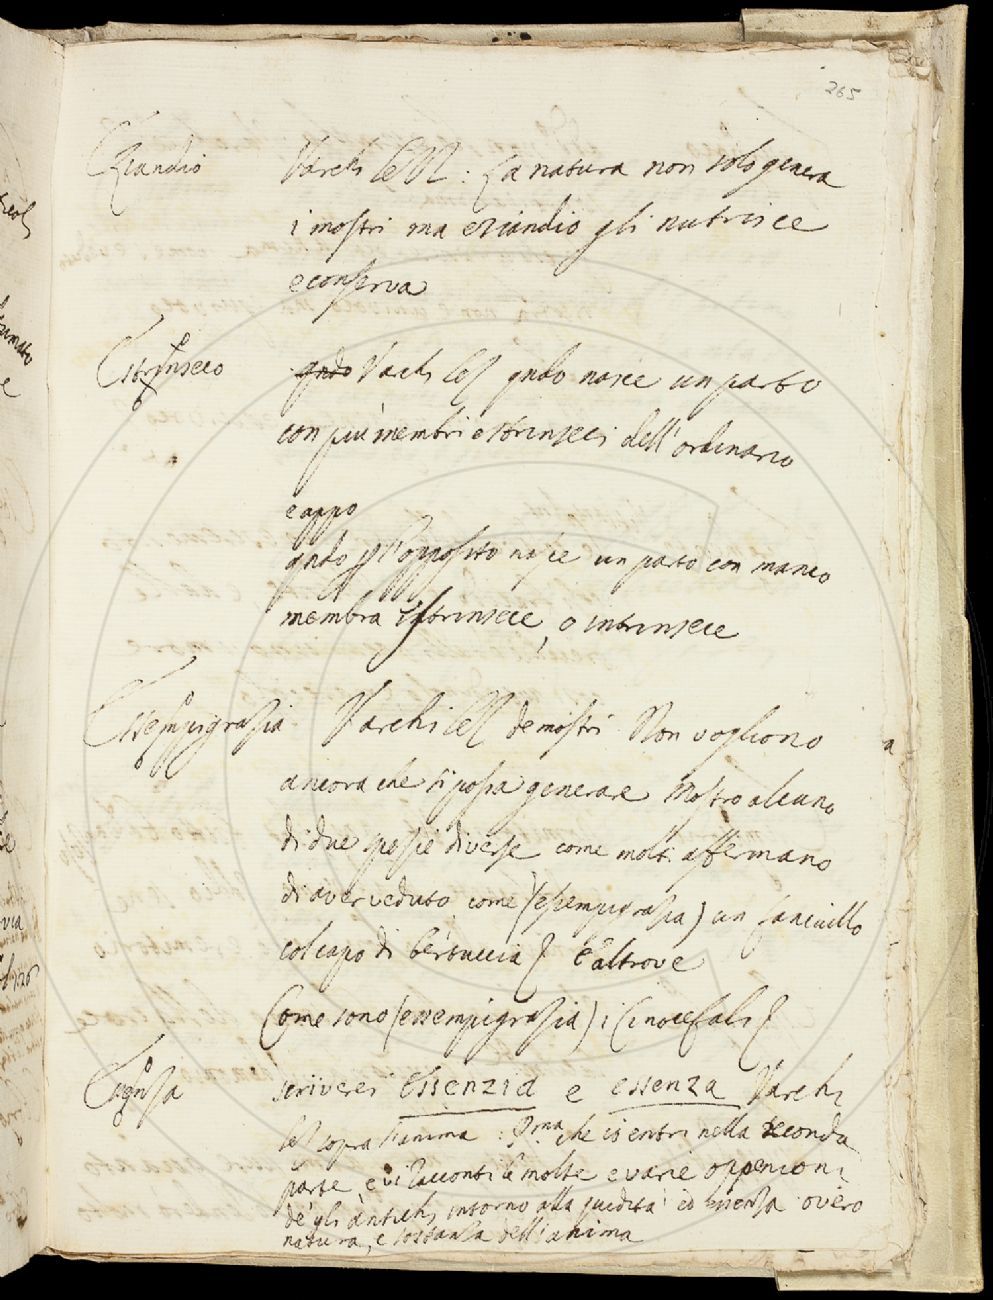 265
Eziandio Varchi lezz: La natura non solo genera
i mostri ma eziandio gli nutrisce
e conserva
Estrinseco qndo Varchi lez qndo nasce un parto
con più membri estrinseci dell'ordinario
e appo
qndo p l'opposito nasce un parto con manco
membra estrinsece, o intrinsece
Essempigrazia Varchi lezz de mostri Non vogliono
ancora che si possa generare Mostro alcuno
di due spezie diverse come molti affermano
di aver veduto come (esempigrazia) un fanciullo
col capo di bertuccia E altrove
Come sono (essempigrazia) i Cinocefali
scriverei Essenzia e essenza Varchi
lez sopra l'anima: Pma che io entri nella seconda
parte, e vi racconti le molte e varie oppenioni
de gli antichi intorno alla quidità ed essenza overo
natura, e sostanza dell'anima